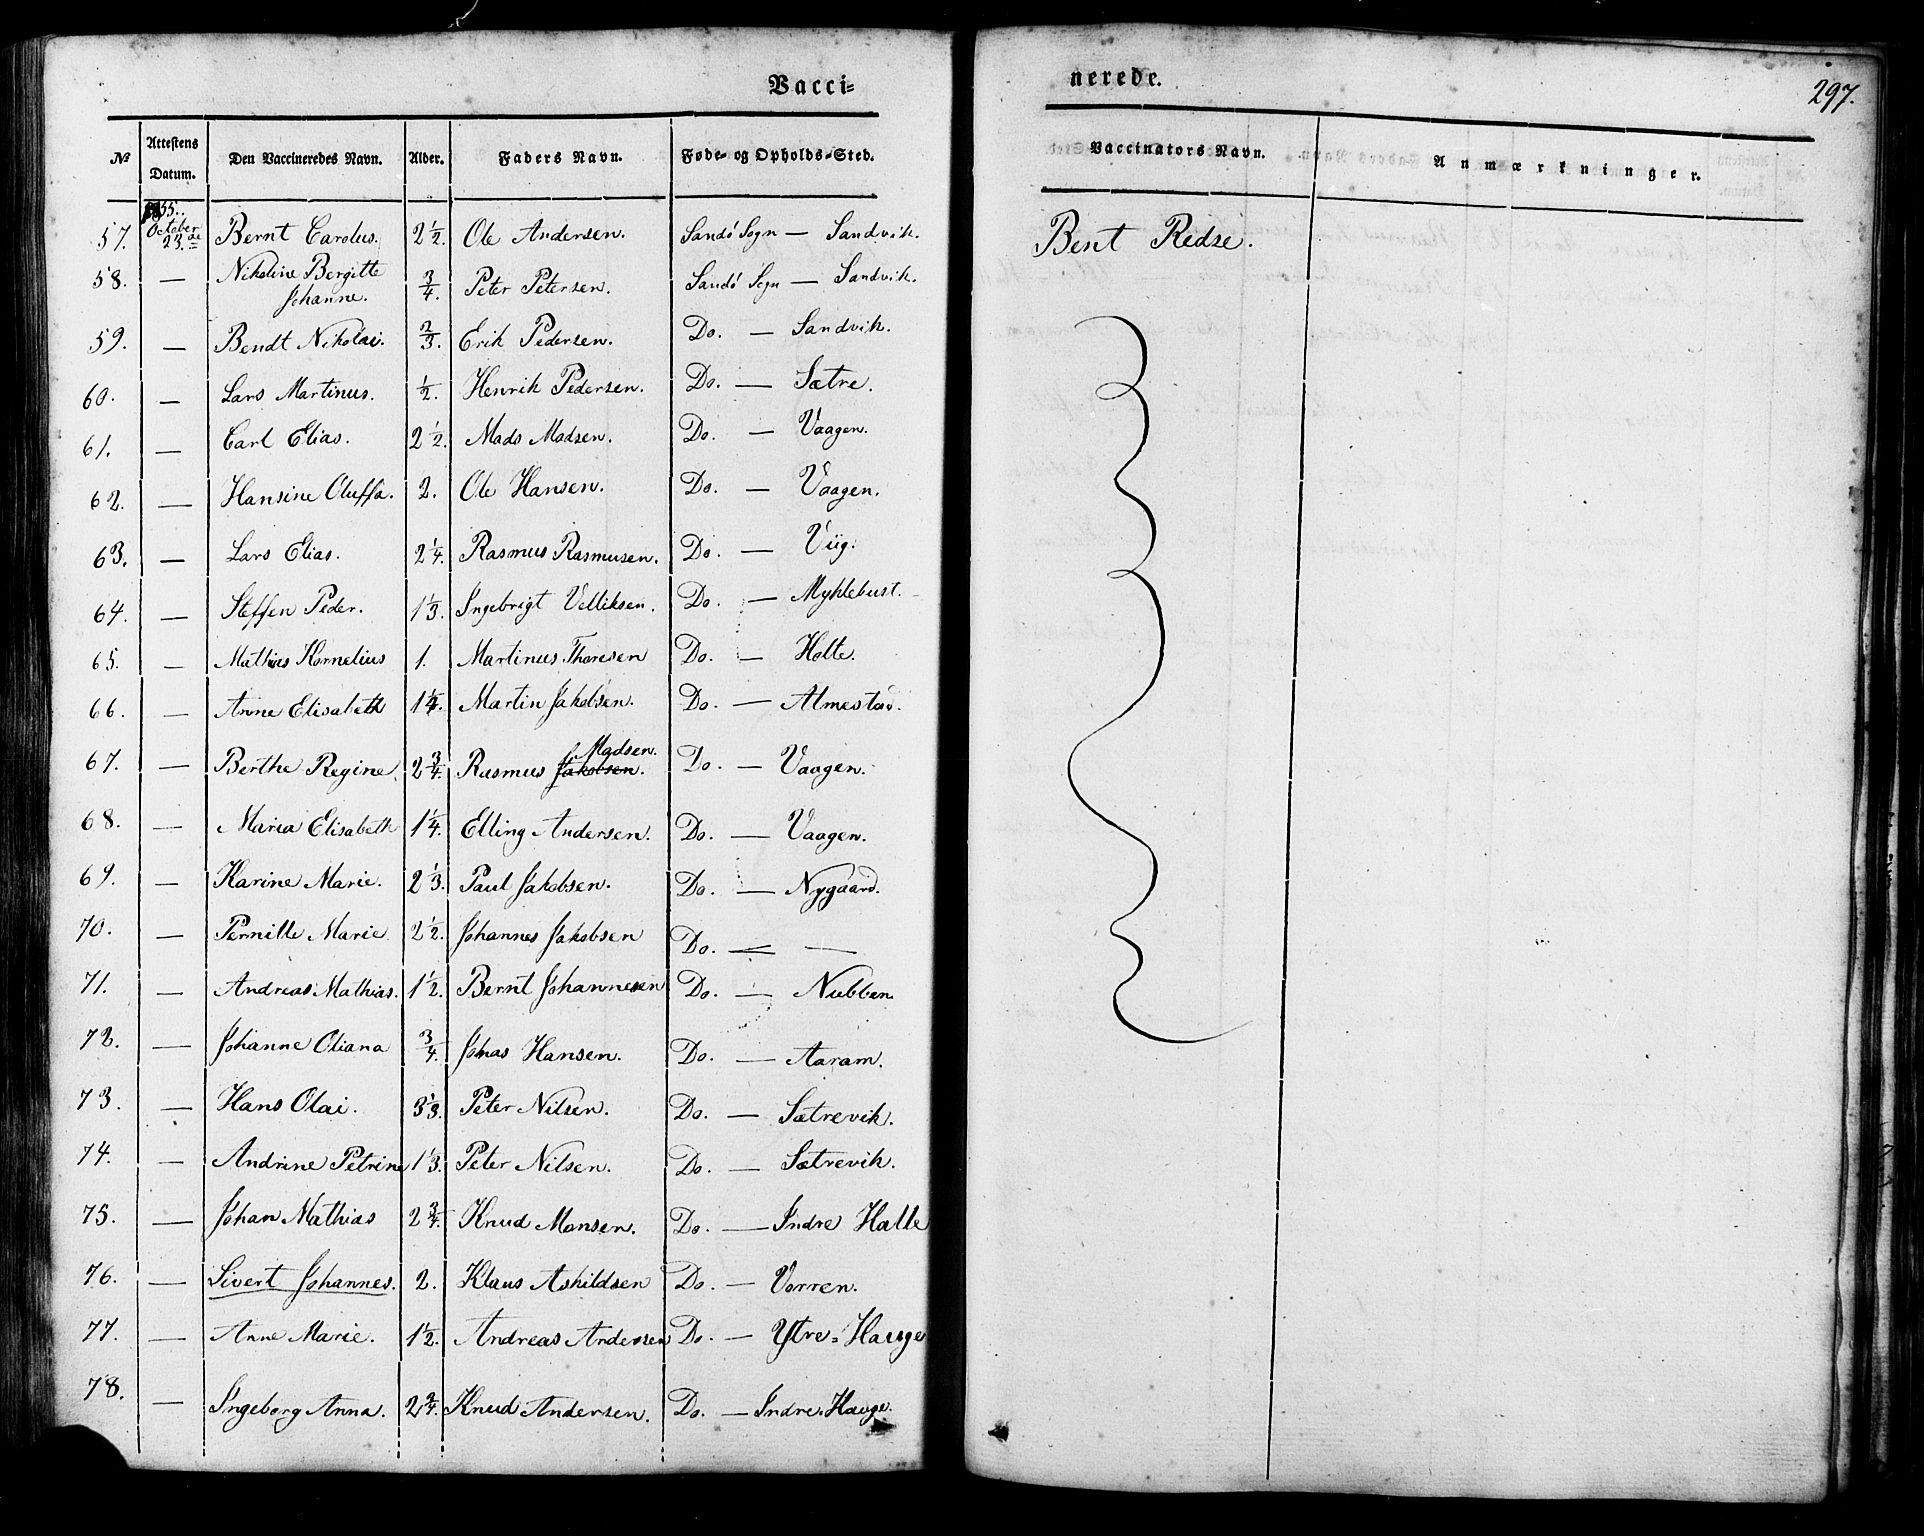 Vacci=
nerede.
297.
№ Attestens Datum. Den Vaccineredes Navn. Alder. Faders Navn. Føde- og Opholds-Sted. Vaccinators Navn. Anmærkninger.
1855.
57. October 23de Bernt Carolus. 2½. Ole Andersen. Sandö Sogn — Sandvik. Bent Redse.
58. — Nikoline Bergitte Johanne. ¾. Peter Petersen. Sandö Sogn — Sandvik.
59. — Bendt Nikolai. ⅔. Erik Pedersen. Do. — Sandvik.
60. — Lars Martinus. ½. Henrik Pedersen. Do. — Sætre.
61. — Carl Elias. 2½. Mads Madsen. Do. — Vaagen.
62. — Hansine Oluffa. 2. Ole Hansen. Do. — Vaagen.
63. — Lars Elias. 2¼. Rasmus Rasmusen. Do. — Viig.
64. — Steffen Peder. 1⅓. Ingebrigt Velliksen. Do. — Myklebust.
65. — Mathias Kornelius 1. Martinus Thoresen Do. — Holte.
66. — Anne Elisabeth 1¼. Martin Jakobsen. Do. — Almestad.
67. — Berthe Regine. 2¾. Rasmus Jakobsen. Madsen. Do. — Vaagen.
68. — Maria Elisabeth 1¼. Elling Andersen. Do. — Vaagen.
69. — Karine Marie. 2⅓. Paul Jakobsen. Do. — Nygaard.
70. — Pernille Marie 2½. Johannes Jakobsen Do. — —
71. — Andreas Mathias. 1½. Bernt Johannesen Do. — Nubben.
72. — Johanne Oliana ¾. Johas Hansen. Do. — Aaram.
73. — Hans Olai. 3⅓. Peter Nilsen. Do. — Sætrevik.
74. — Andrine Petrine 1⅓. Peter Nilsen. Do. — Sætrevik.
75. — Johan Mathias 2¾. Knud Monsen. Do. — Indre Halle
76. — Sivert Johannes. 2. Klaus Askildsen Do. — Vorren.
77. — Anne Marie. 1½. Andreas Andersen Do. — Ytre=Hauge
78. — Ingeborg Anna. 2¾. Knud Andersen. Do. — Indre Hauge.